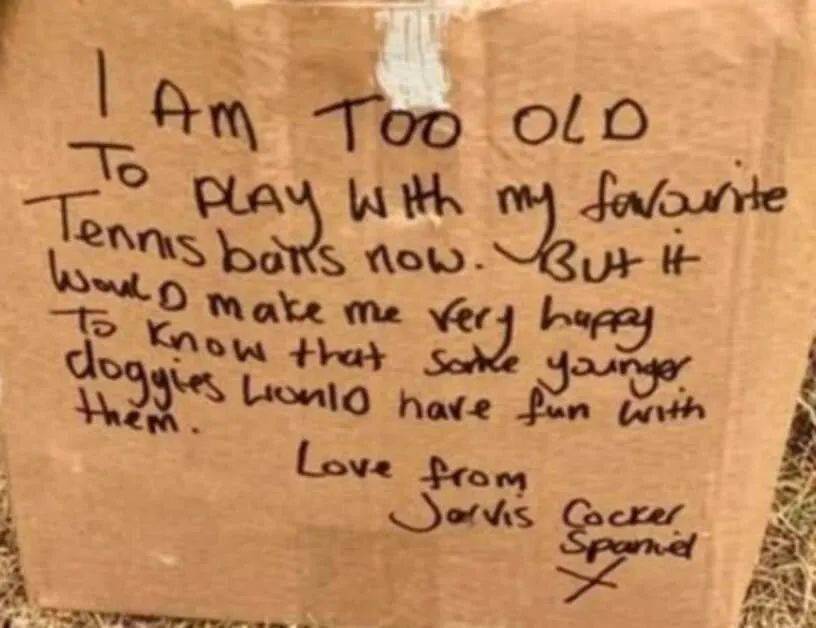 I AM TOO OLD
To PLAY WITH my favourite
Tennis balls now. But it
WOULD make me very happy
To KNOW that some younger
doggies WOULD have fun with
them.
Love from
Jarvis Cocker
Spaniel
X